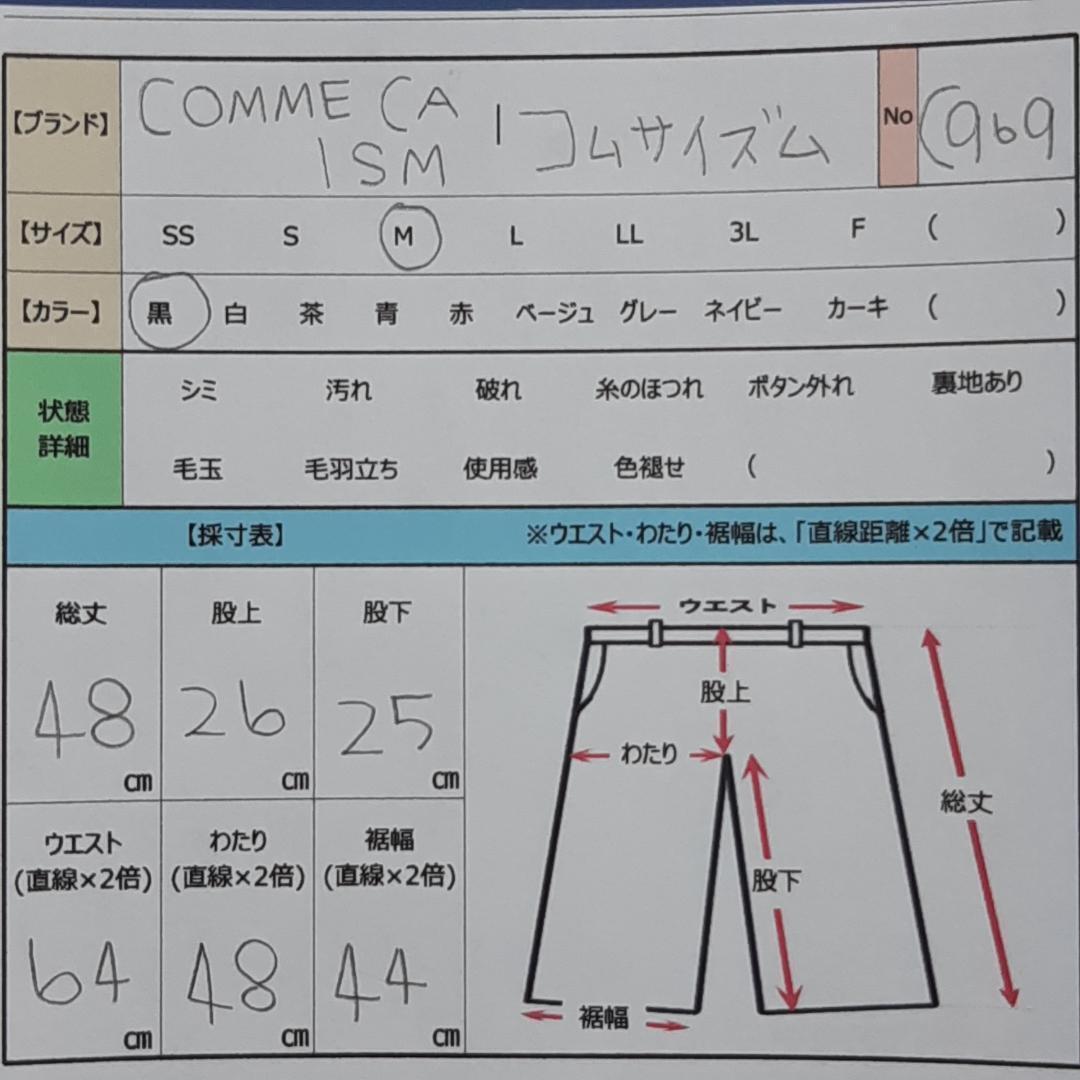 【ブランド】 COMME CA ISM | コムサイズム No C969
【サイズ】 SS S M L LL 3L F ( )
【カラー】 黒 白 茶 青 赤 ベージュ グレー ネイビー カーキ ( )
状態詳細
シミ 汚れ 破れ 糸のほつれ ボタン外れ 裏地あり
毛玉 毛羽立ち 使用感 色褪せ ( )
【採寸表】 ※ウエスト・わたり・裾幅は、「直線距離×2倍」で記載
総丈 股上 股下
48cm 26cm 25cm
ウエスト わたり 裾幅
(直線×2倍) (直線×2倍) (直線×2倍)
64cm 48cm 44cm
ウエスト
股上
わたり
総丈
股下
裾幅